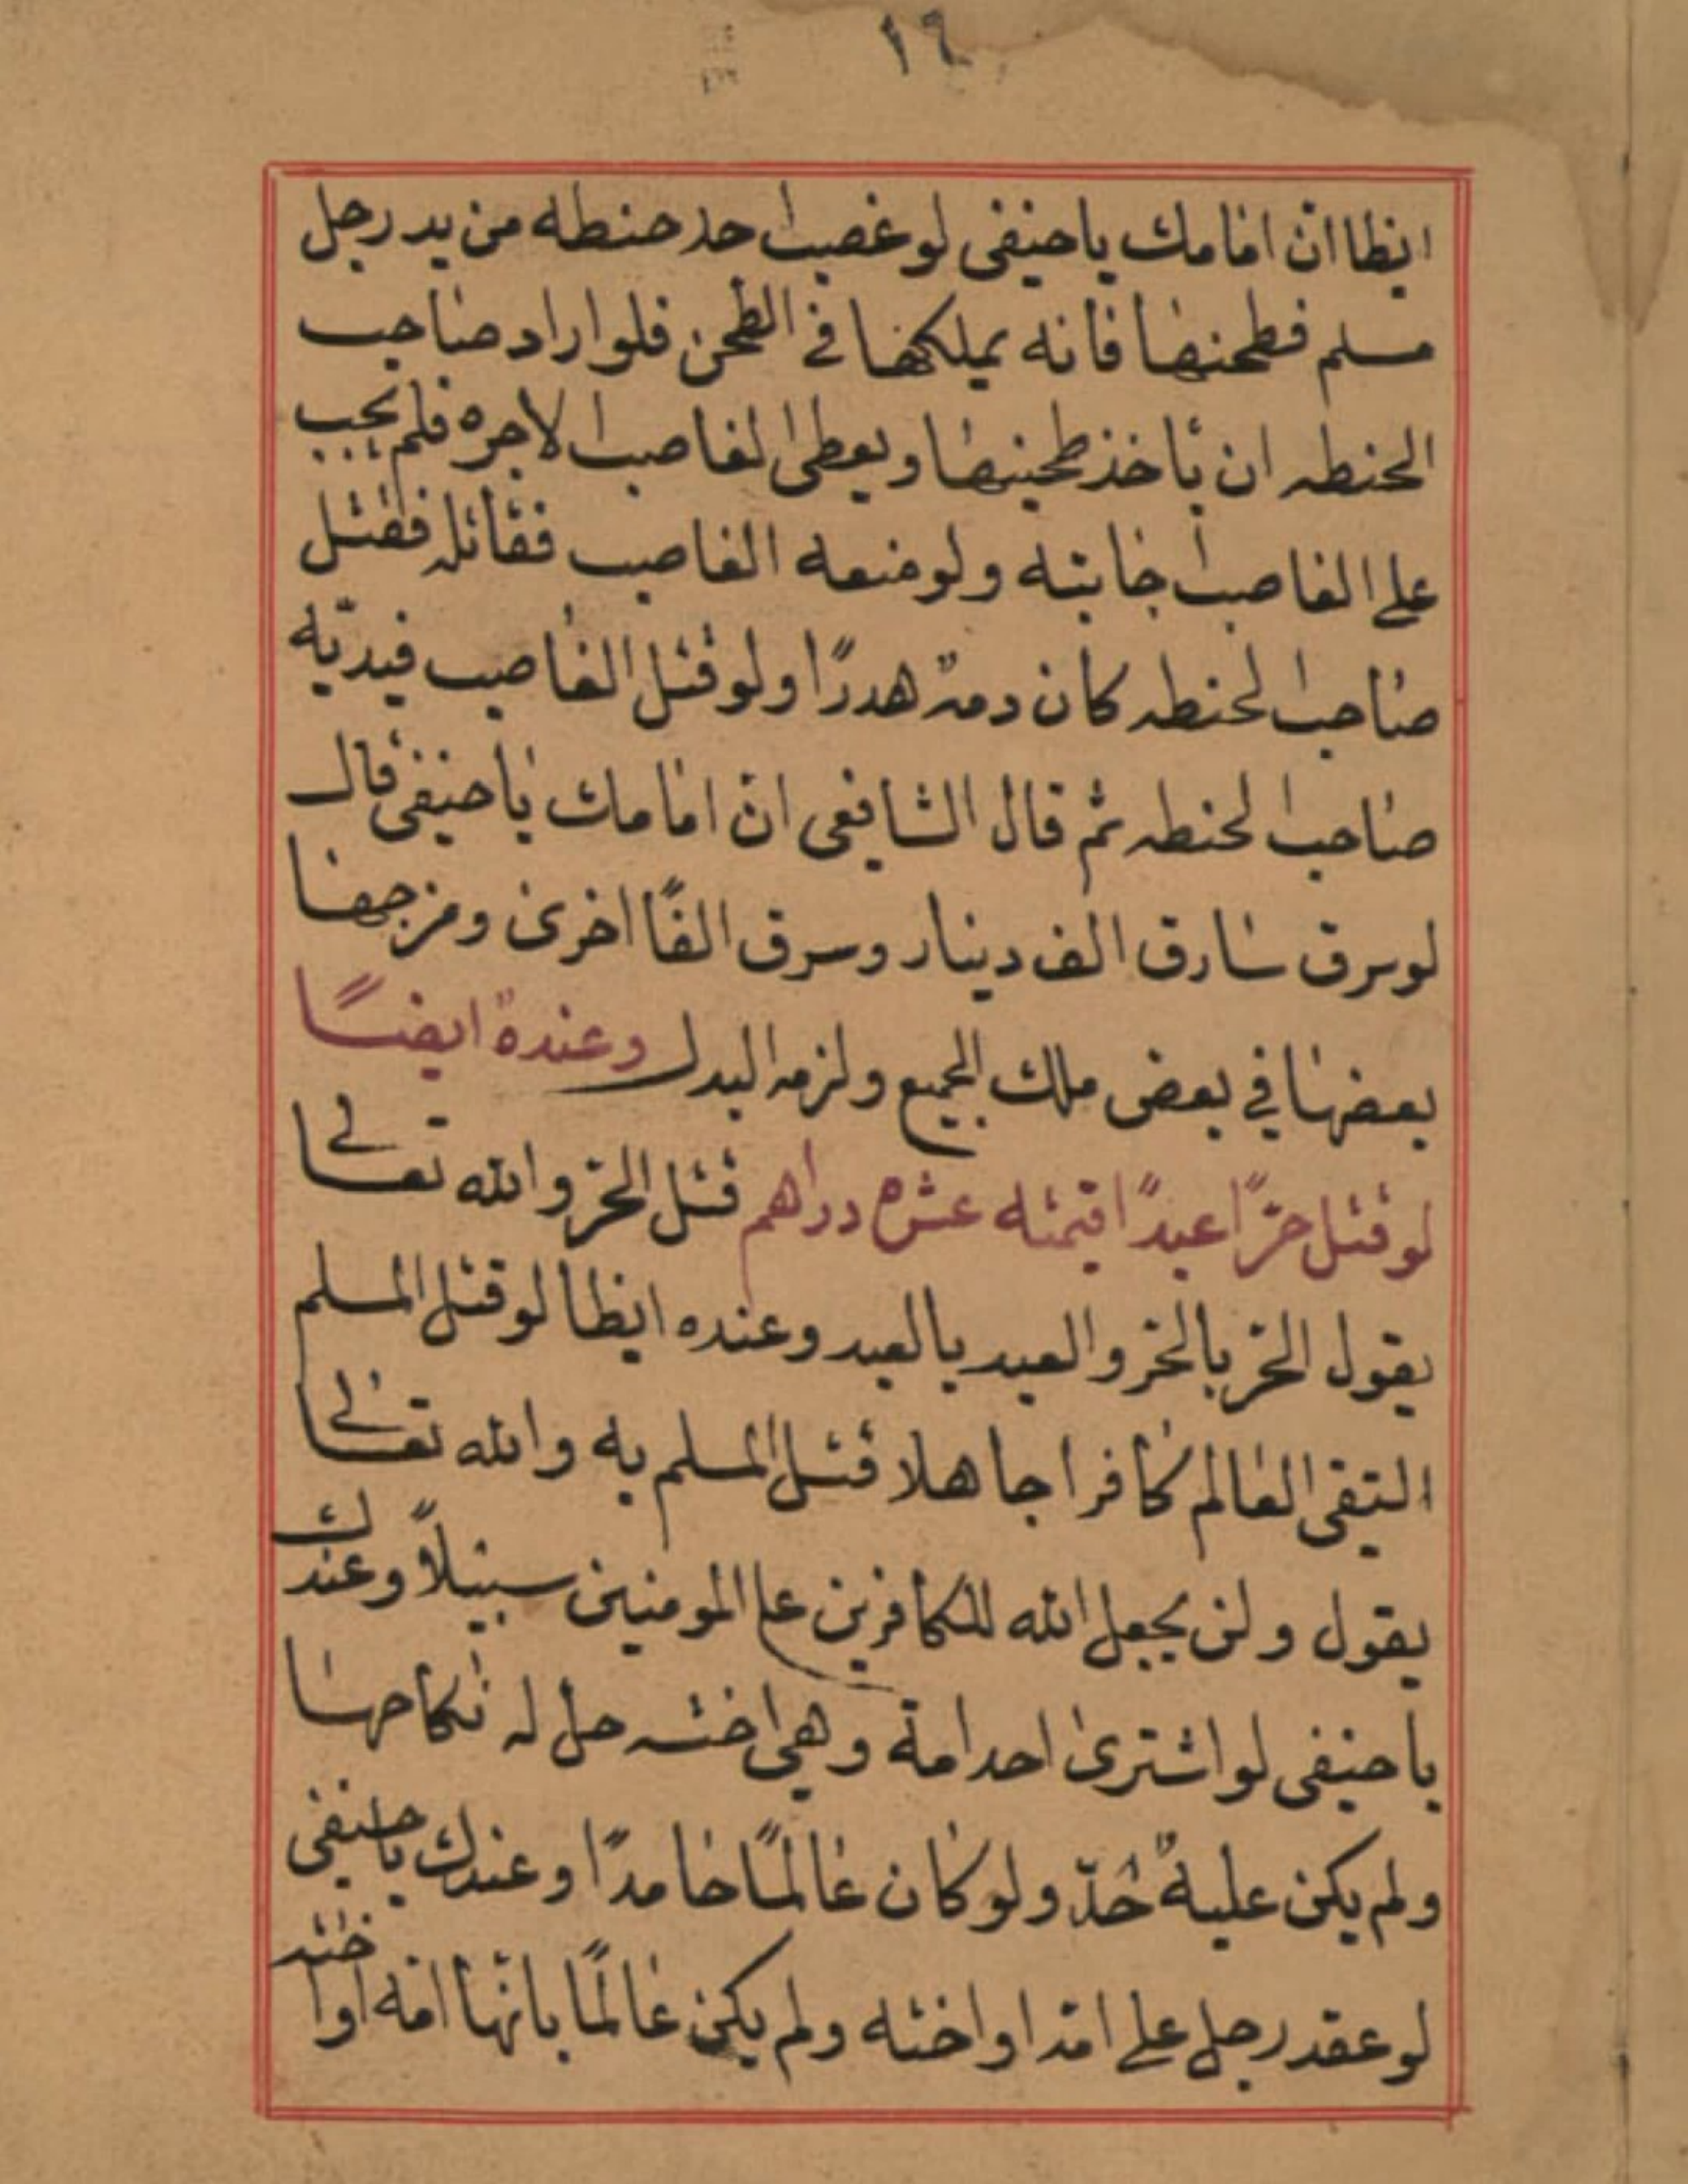 ١٦
ايظا ان امامك ياحنيفى لو غصب احد حنطه من يد رجل
مسلم فطحنها فانه يملكها في الطحن فلو اراد صاحب
الحنطه ان ياخذ طحينها ويعطى الغاصب الاجره فلم يجب
على الغاصب اجابته ولو منعه الغاصب فقاتله فقتل
صاحب الحنطه كان دمه هدرًا ولو قتل الغاصب فيديّه
صاحب الحنطه ثم قال الشافعى انّ امامك ياحنيفى قال
لو سرق سارق الف دينار وسرق الفًا اخرى ومزجها
بعضها في بعض ملك الجميع ولزمه البدل وعنده ايضًا
لو قتل حرًّا عبدًا قيمته عشره دراهم قتل الحرّ والله تعالى
يقول الحرّ بالحرّ والعبد بالعبد وعنده ايظا لو قتل المسلم
التقى العالم كافرا جاهلا قتل المسلم به والله تعالى
يقول ولن يجعل الله للكافرين على المومنين سبيلاً وعندك
ياحنيفى لو اشترى احد امة وهى اخته حل له نكاحها
ولم يكن عليه حُدّ ولو كان عالمًا عامدًا وعندك ياحنيفى
لو عقد رجل على امّه او اخته ولم يكن عالمًا بانّها امّه او اخته